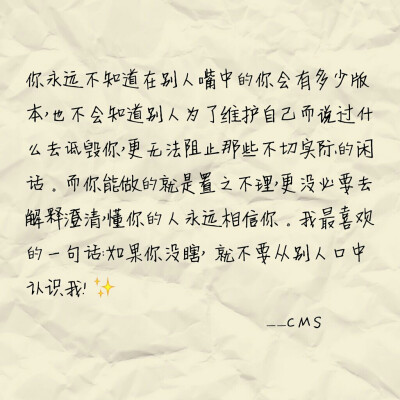 你永远不知道在别人嘴中的你会有多少版
本,也不会知道别人为了维护自己而说过什
么去诋毁你,更无法阻止那些不切实际的闲
话。而你能做的就是置之不理,更没必要去
解释澄清,懂你的人永远相信你。我最喜欢
的一句话:如果你没瞎,就不要从别人口中
认识我!✨
__CMS